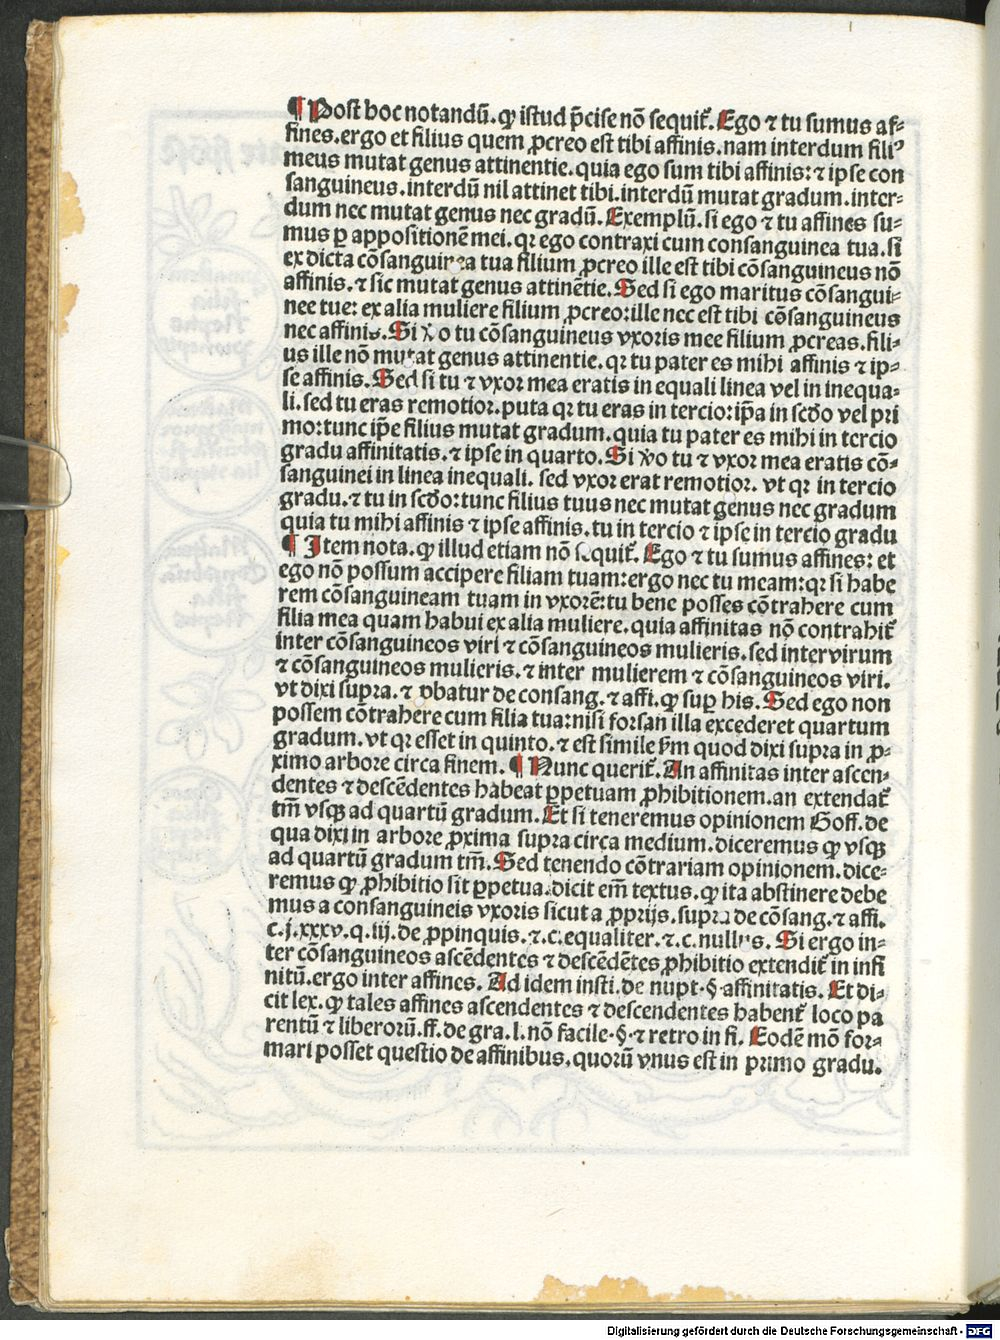 ¶ Post hoc notandū. ꝙ istud p̄cise nō sequit᷑. Ego ⁊ tu sumus af⸗
fines. ergo et filius quem ꝓcreo est tibi affinis. nam interdum filiꝰ
meus mutat genus attinentie. quia ego sum tibi affinis: ⁊ ipse con
sanguineus. interdū nil attinet tibi. interdū mutat gradum. inter⸗
dum nec mutat genus nec gradū. Exemplū. si ego ⁊ tu affines su⸗
mus ꝑ appositionē mei. qꝛ ego contraxi cum consanguinea tua. si
ex dicta cōsanguinea tua filium ꝓcreo ille est tibi cōsanguineus nō
affinis. ⁊ sic mutat genus attinētie. Sed si ego maritus cōsangui⸗
nee tue: ex alia muliere filium ꝓcreo: ille nec est tibi cōsanguineus
nec affinis. Si v̄o tu cōsanguineus vxoris mee filium ꝓcreas. fili⸗
us ille nō mutat genus attinentie. qꝛ tu pater es mihi affinis ⁊ ip⸗
se affinis. Sed si tu ⁊ vxor mea eratis in equali linea vel in inequa⸗
li. sed tu eras remotior. puta qꝛ tu eras in tercio: ip̄a in scd̄o vel pri
mo: tunc ip̄e filius mutat gradum. quia tu pater es mihi in tercio
gradu affinitatis. ⁊ ipse in quarto. Si v̄o tu ⁊ vxor mea eratis cō⸗
sanguinei in linea inequali. sed vxor erat remotior. vt qꝛ in tercio
gradu. ⁊ tu in scd̄o: tunc filius tuus nec mutat genus nec gradum
quia tu mihi affinis ⁊ ipse affinis. tu in tercio ⁊ ipse in tercio gradu
¶ Item nota. ꝙ illud etiam nō sequit᷑. Ego ⁊ tu sumus affines: et
ego nō possum accipere filiam tuam: ergo nec tu meam: qꝛ si habe
rem cōsanguineam tuam in vxorē: tu bene posses cōtrahere cum
filia mea quam habui ex alia muliere. quia affinitas nō contrahit᷑
inter cōsanguineos viri ⁊ cōsanguineos mulieris. sed inter virum
⁊ cōsanguineos mulieris. ⁊ inter mulierem ⁊ cōsanguineos viri.
vt dixi supra. ⁊ ꝓbatur de consang. ⁊ affi. ꝙ suꝑ his. Sed ego non
possem cōtrahere cum filia tua: nisi forsan illa excederet quartum
gradum. vt qꝛ esset in quinto. ⁊ est simile ẜm quod dixi supra in ꝓ⸗
ximo arbore circa finem. ¶ Nunc querit᷑. An affinitas inter ascen⸗
dentes ⁊ descēdentes habeat ꝑpetuam ꝓhibitionem. an extendat᷑
tm̄ vsqꝫ ad quartū gradum. Et si teneremus opinionem Goff. de
qua dixi in arbore ꝓxima supra circa medium. diceremus ꝙ vsqꝫ
ad quartū gradum tm̄. Sed tenendo cōtrariam opinionem. dice⸗
remus ꝙ ꝓhibitio sit ꝑpetua. dicit em̄ textus. ꝙ ita abstinere debe
mus a consanguineis vxoris sicut a ꝓprijs. supra de cōsang. ⁊ affi.
c. j. xxxv. q. iij. de ꝓpinquis. ⁊. c. equaliter. ⁊. c. nullus. Si ergo in⸗
ter cōsanguineos ascēdentes ⁊ descēdētes ꝓhibitio extendit᷑ in infi
nitū. ergo inter affines. Ad idem insti. de nupt. §. affinitatis. Et di⸗
cit lex. ꝙ tales affines ascendentes ⁊ descendentes habent᷑ loco pa
rentū ⁊ liberorū. ff. de gra. l. nō facile. §. ⁊ retro in fi. Eodē mō for⸗
mari posset questio de affinibus. quorū vnus est in primo gradu.
Digitalisierung gefördert durch die Deutsche Forschungsgemeinschaft - DFG